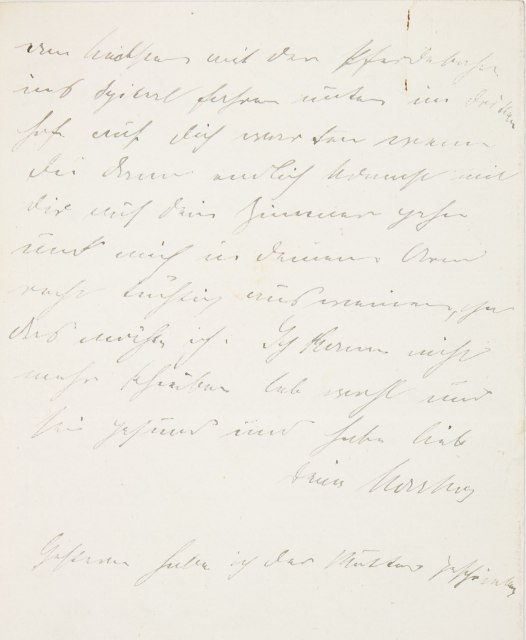 mit der Pferdebahn
ins Spital fahren unten im dritten
Hof auf Dich warten wenn
Du dann endlich kommst mit
dir auf dein Zimmer gehen
und mich in deinem Arm
recht tüchtig ausweinen, ja
das möchte ich. Ich kann nicht
mehr schreiben leb wohl und
sei gesund und habe lieb
dein
Gestern habe ich der Mutter geschrieben